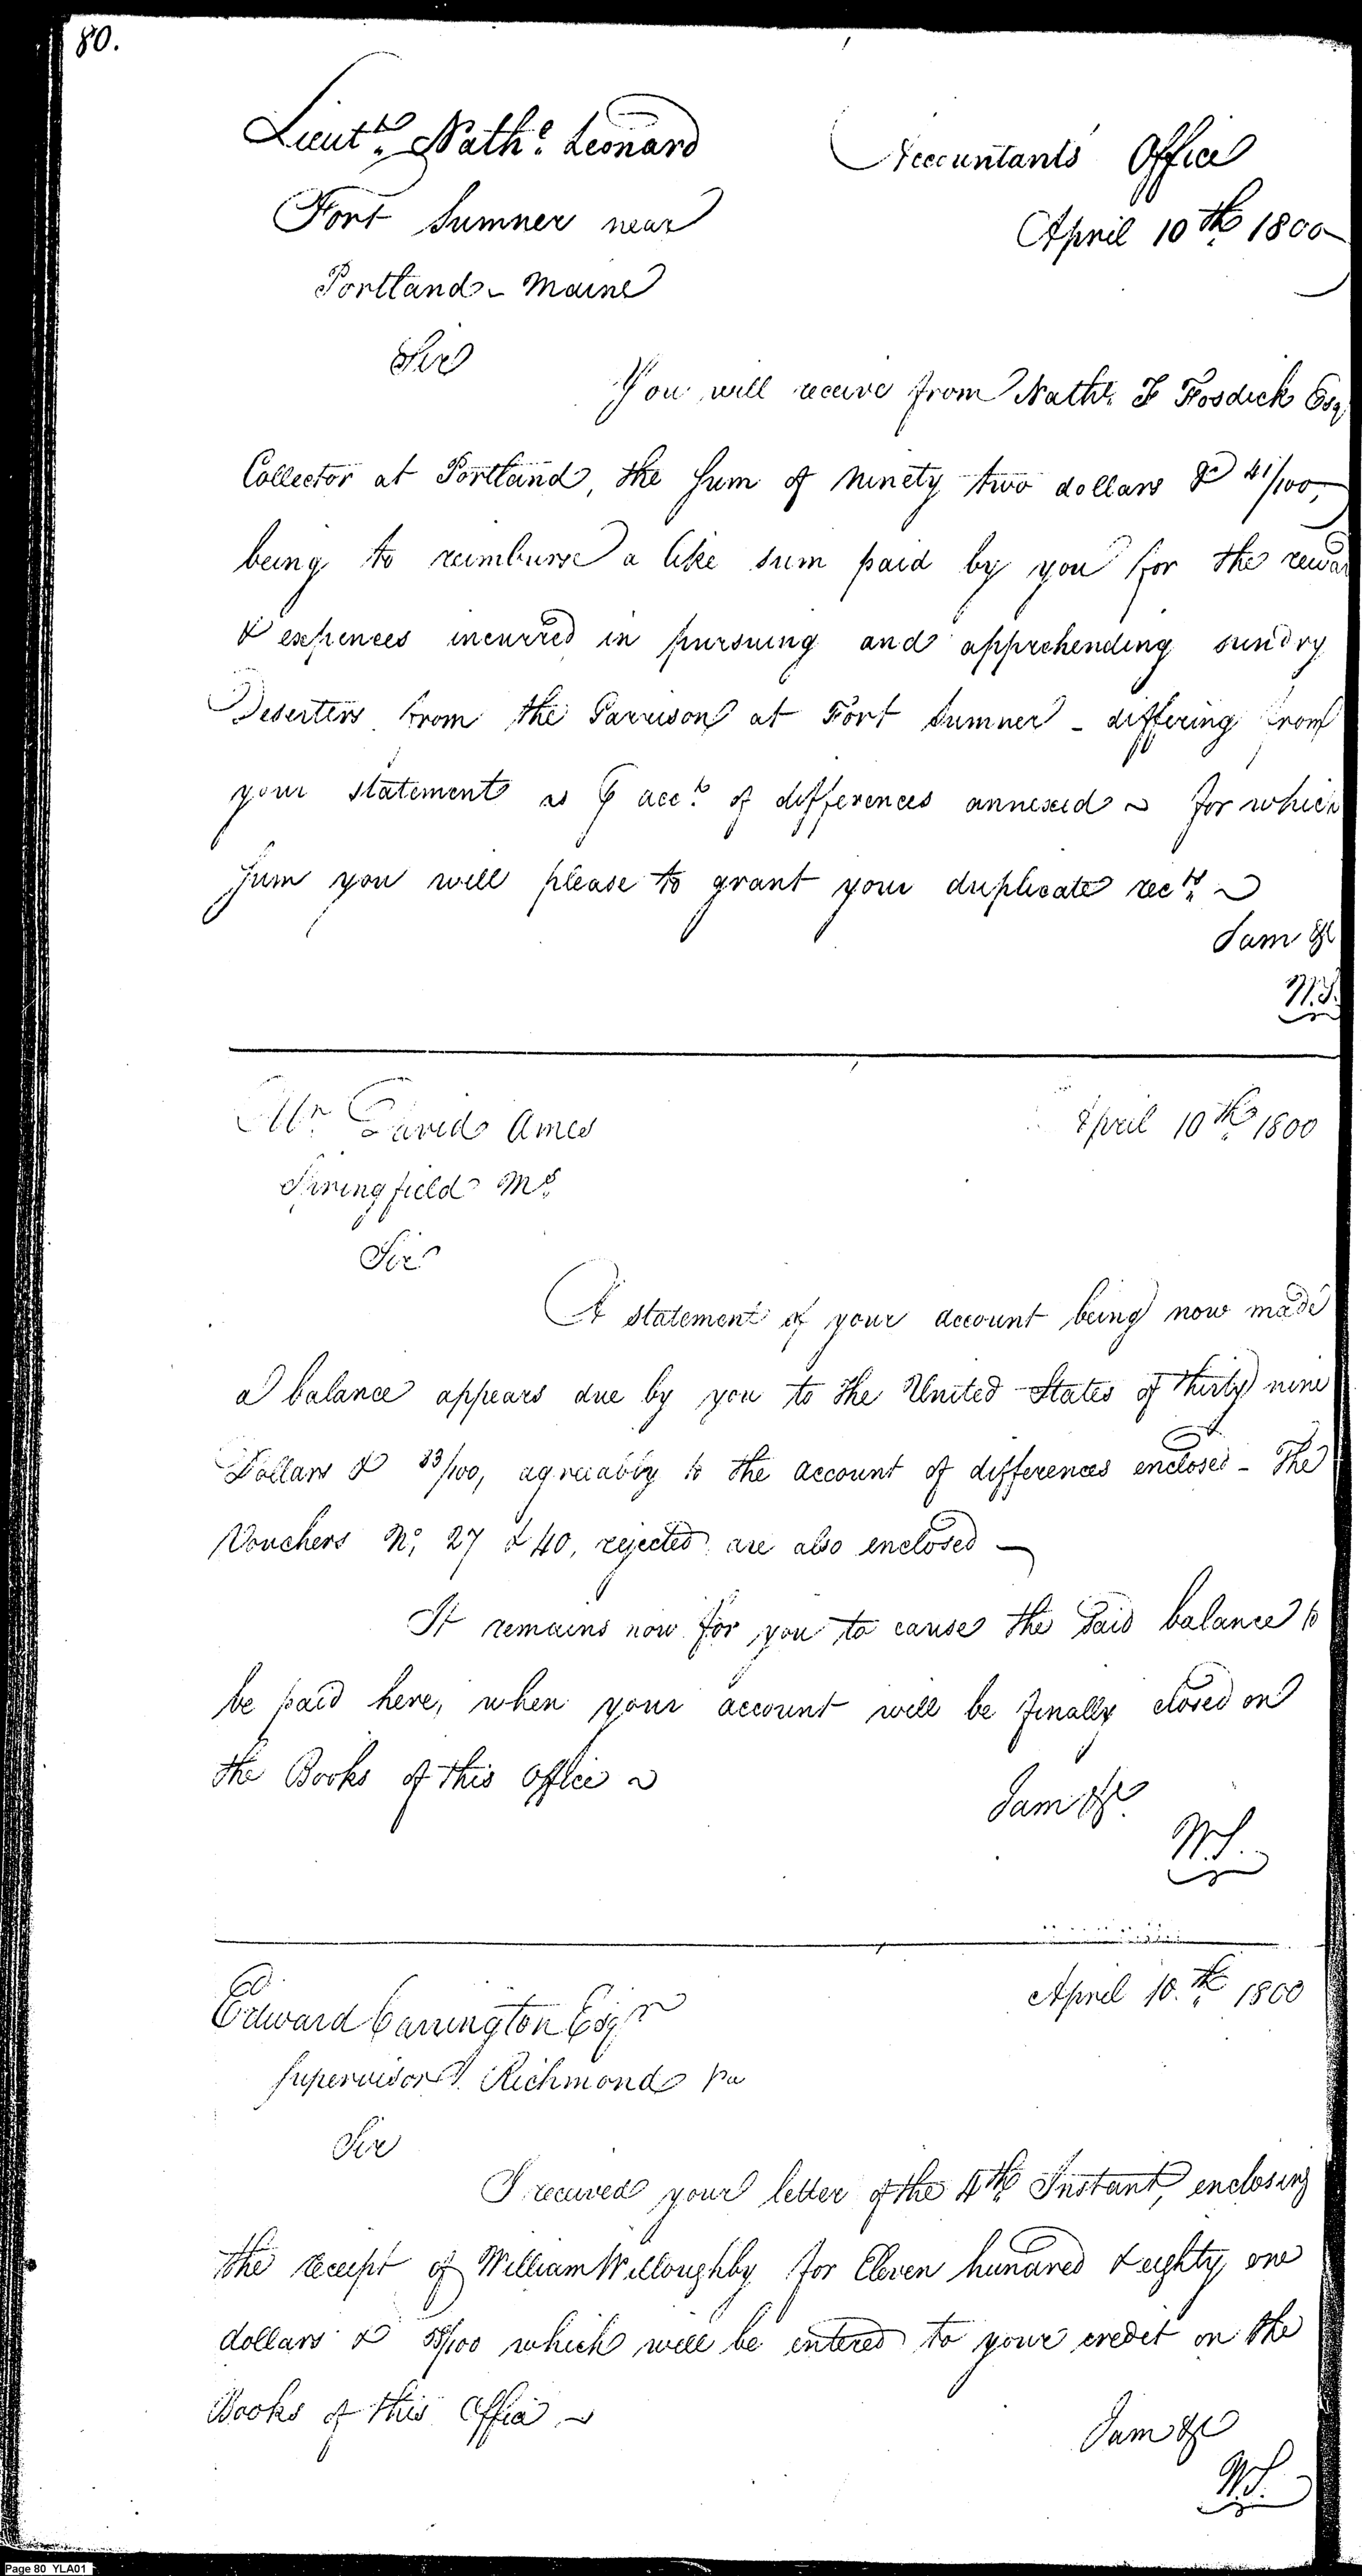 80.
Lieut.t Nath.l Leonard
Accountants Office
Fort Sumner near
April 10th 1800
Portland - Maine
Sir
You will receive from Nath.l F Fosdick Esq
Collector at Portland, the Sum of ninety two dollars & 41/100,
being to reimburse a like sum paid by you for the rewar
& expences incurred in pursuing and apprehending sundry
Deserters from the Garrison at Fort Sumner - differing from
your statement as ⅌ acc.t of differences annexed ~ for which
Sum you will please to grant your duplicate rec.ts ~
I am &c
W.S.
Mr David Ames
April 10th 1800
Springfield Ms
Sir
A statement of your account being now made
a balance appears due by you to the United States of thirty nine
Dollars & 33/100, agreeably to the account of differences enclosed - The
Vouchers No. 27 & 40, rejected are also enclosed -
It remains now for you to cause the said balance to
be paid here, when your account will be finally closed on
the Books of this Office ~
I am &c.
W.S.
Edward Carrington Esqr
April 10.th 1800
Supervisor Richmond Va
Sir
I received your letter of the 4th Instant, enclosing
the receipt of William Willoughby for Eleven hundred & eighty one
dollars & /100 which will be entered to your credit on the
Books of this Office ~
I am &c
W.S.
Page 80 YLA01